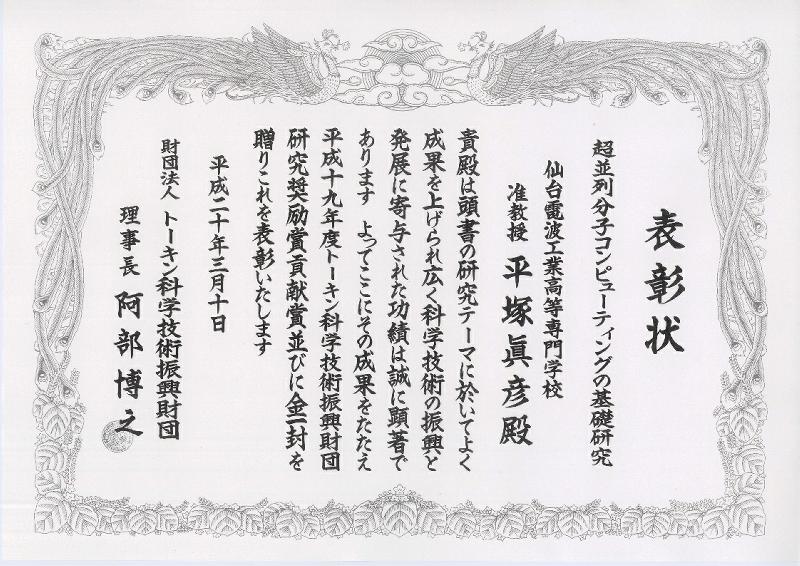 表彰状
超並列分子コンピューティングの基礎研究
仙台電波工業高等専門学校
准教授 平塚眞彦殿
貴殿は頭書の研究テーマに於いてよく
成果を上げられ広く科学技術の振興と
発展に寄与された功績は誠に顕著で
あります よってここにその成果をたたえ
平成十九年度トーキン科学技術振興財団
研究奨励賞貢献賞並びに金一封を
贈りこれを表彰いたします
平成二十年三月十日
財団法人 トーキン科学技術振興財団
理事長 阿部博之